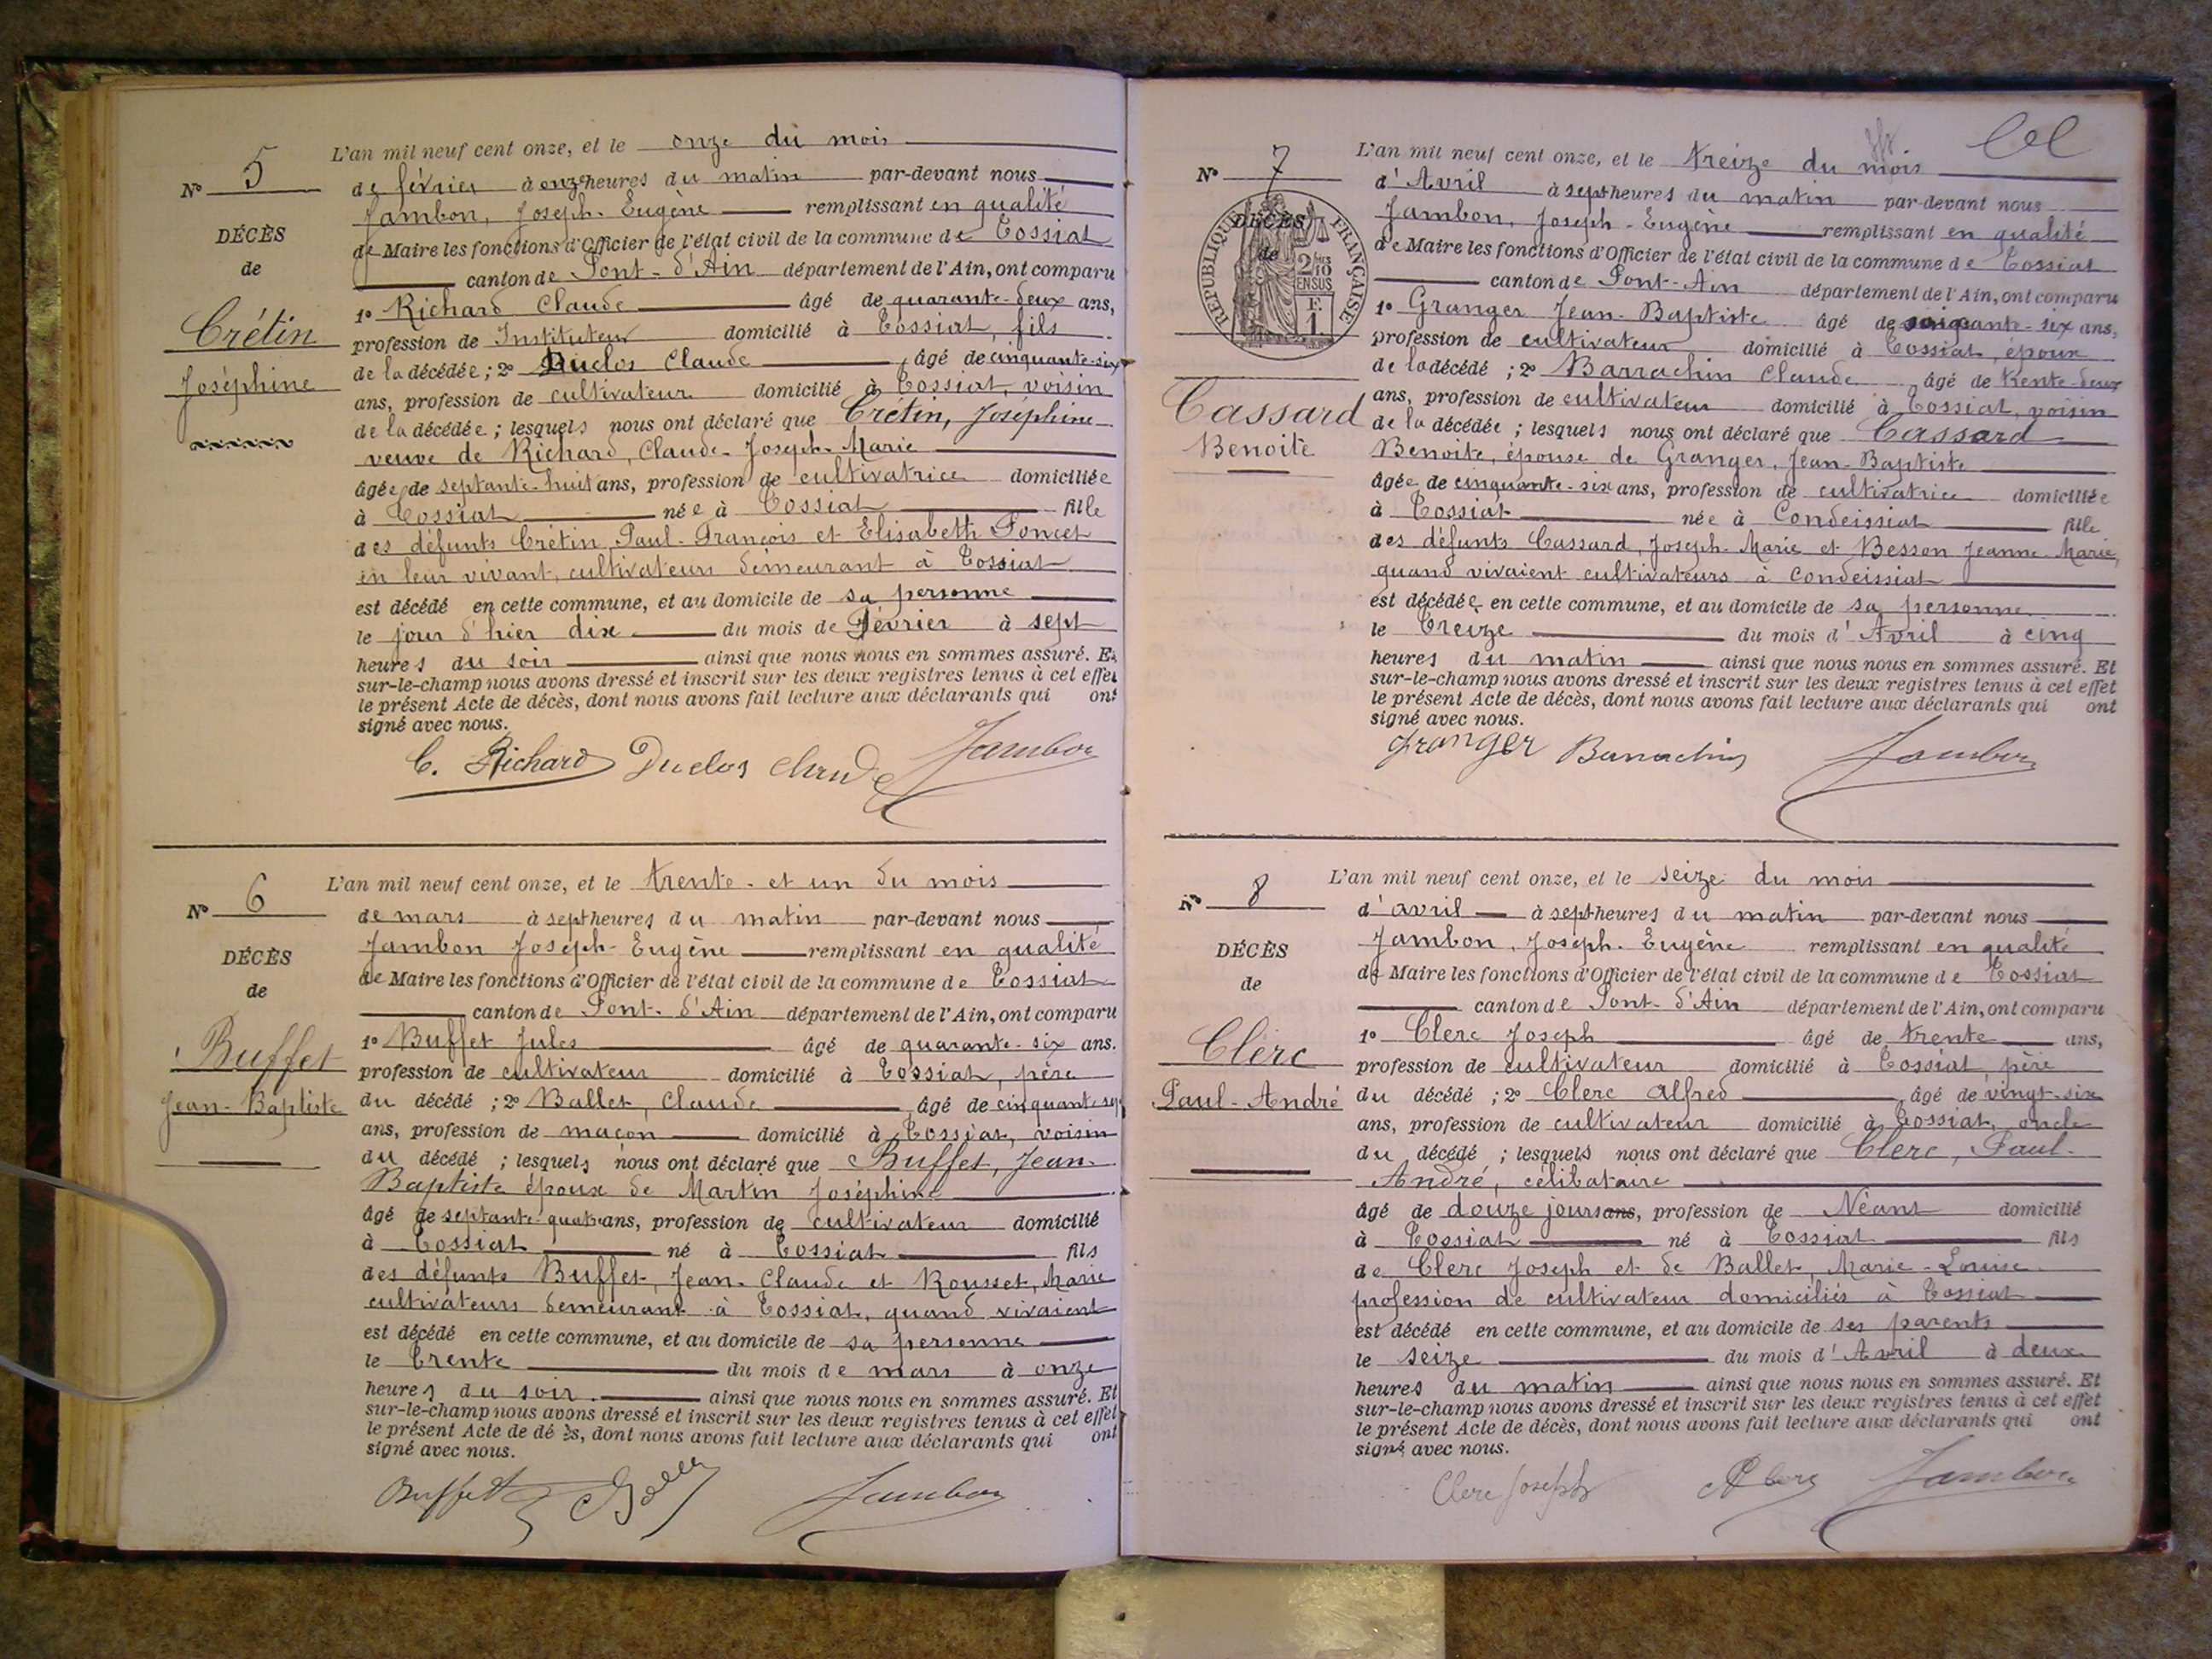 N° 5
DÉCÈS
de
Crétin
Joséphine
L'an mil neuf cent onze, et le onze du mois
de février à onze heures du matin par-devant nous
Jambon, Joseph-Eugène remplissant en qualité
de Maire les fonctions d'Officier de l'état civil de la commune de Tossiat
canton de Pont-d'Ain département de l'Ain, ont comparu
1° Richard Claude âgé de quarante-deux ans,
profession de Instituteur domicilié à Tossiat, fils
de la décédée ; 2° Duclos Claude, âgé de cinquante-six
ans, profession de cultivateur domicilié à Tossiat, voisin
de la décédée ; lesquels nous ont déclaré que Crétin, Joséphine
veuve de Richard, Claude-Joseph-Marie
âgée de septante-huit ans, profession de cultivatrice domiciliée
à Tossiat née à Tossiat fille
des défunts Crétin, Paul-François et Elisabeth Poncet
en leur vivant, cultivateurs demeurant à Tossiat
est décédé en cette commune, et au domicile de sa personne
le jour d'hier dix du mois de Février à sept
heures du soir ainsi que nous nous en sommes assuré. Et
sur-le-champ nous avons dressé et inscrit sur les deux registres tenus à cet effet
le présent Acte de décès, dont nous avons fait lecture aux déclarants qui ont
signé avec nous.
C. Richard Duclos Claude Jambon
N° 6
DÉCÈS
de
Buffet
Jean-Baptiste
L'an mil neuf cent onze, et le trente-et un du mois
de mars à sept heures du matin par-devant nous
Jambon Joseph-Eugène remplissant en qualité
de Maire les fonctions d'Officier de l'état civil de la commune de Tossiat
canton de Pont-d'Ain département de l'Ain, ont comparu
1° Buffet Jules âgé de quarante-six ans.
profession de cultivateur domicilié à Tossiat, père
du décédé ; 2° Ballet, Claude, âgé de cinquante sep
ans, profession de maçon domicilié à Tossiat, voisin
du décédé ; lesquels nous ont déclaré que Buffet, Jean-
Baptiste époux de Martin Joséphine
âgé de septante-quatre ans, profession de cultivateur domicilié
à Tossiat né à Tossiat fils
des défunts Buffet, Jean-Claude et Rousset, Marie
cultivateurs demeurant à Tossiat, quand vivaient
est décédé en cette commune, et au domicile de sa personne
le Trente du mois de mars à onze
heures du soir. ainsi que nous nous en sommes assuré. Et
sur-le-champ nous avons dressé et inscrit sur les deux registres tenus à cet effet
le présent Acte de décès, dont nous avons fait lecture aux déclarants qui ont
signé avec nous.
Buffet Jambon
N° 7
DÉCÈS
de
RÉPUBLIQUE FRANÇAISE
2/10 EN SUS
F. 1.
Cassard
Benoite
L'an mil neuf cent onze, et le treize du mois
d'Avril à sept heures du matin par-devant nous
Jambon, Joseph-Eugène remplissant en qualité
de Maire les fonctions d'Officier de l'état civil de la commune de Tossiat
canton de Pont-Ain département de l'Ain, ont comparu
1° Granger Jean-Baptiste âgé de soixante-six ans,
profession de cultivateur domicilié à Tossiat, époux
de la décédé ; 2° Barrachin Claude, âgé de trente-deux
ans, profession de cultivateur domicilié à Tossiat, voisin
de la décédée ; lesquels nous ont déclaré que Cassard
Benoite, épouse de Granger, Jean-Baptiste
âgée de cinquante-six ans, profession de cultivatrice domiciliée
à Tossiat née à Condeissiat fille
des défunts Cassard, Joseph-Marie et Besson Jeanne-Marie,
quand vivaient cultivateurs à Condeissiat
est décédée en cette commune, et au domicile de sa personne
le Treize du mois d'Avril à cinq
heures du matin ainsi que nous nous en sommes assuré. Et
sur-le-champ nous avons dressé et inscrit sur les deux registres tenus à cet effet
le présent Acte de décès, dont nous avons fait lecture aux déclarants qui ont
signé avec nous.
Granger Barrachin Jambon
N° 8
DÉCÈS
de
Clerc
Paul-André
L'an mil neuf cent onze, et le seize du mois
d'avril à sept heures du matin par-devant nous
Jambon, Joseph-Eugène remplissant en qualité
de Maire les fonctions d'Officier de l'état civil de la commune de Tossiat
canton de Pont-d'Ain département de l'Ain, ont comparu
1° Clerc Joseph âgé de trente ans,
profession de cultivateur domicilié à Tossiat, père
du décédé ; 2° Clerc Alfred, âgé de vingt-six
ans, profession de cultivateur domicilié à Tossiat, oncle
du décédé ; lesquels nous ont déclaré que Clerc, Paul-
André, célibataire
âgé de douze jours ans, profession de Néant domicilié
à Tossiat né à Tossiat fils
de Clerc Joseph et de Ballet, Marie-Louise
profession de cultivateur domiciliés à Tossiat
est décédé en cette commune, et au domicile de ses parents
le seize du mois d'Avril à deux
heures du matin ainsi que nous nous en sommes assuré. Et
sur-le-champ nous avons dressé et inscrit sur les deux registres tenus à cet effet
le présent Acte de décès, dont nous avons fait lecture aux déclarants qui ont
signé avec nous.
Clerc Joseph A Clerc Jambon